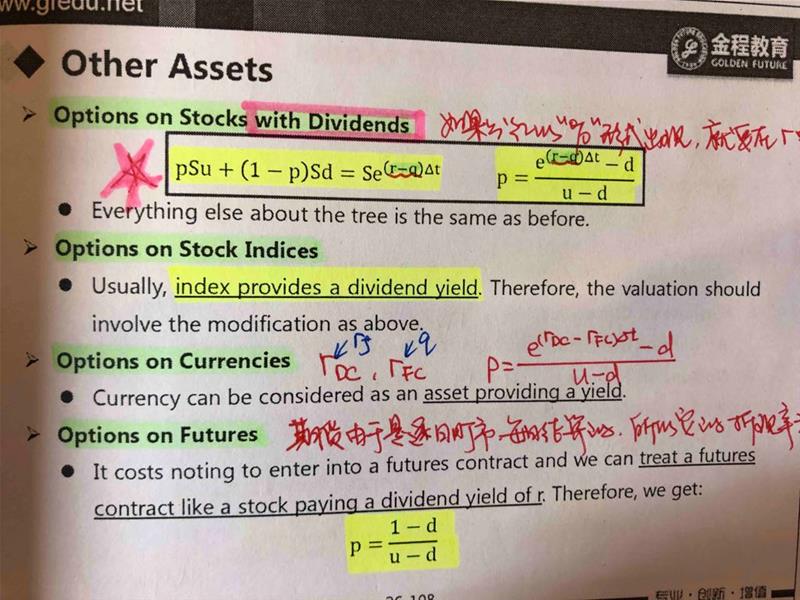 www.gfedu.net
金程教育
GOLDEN FUTURE
Other Assets
Options on Stocks with Dividends 如果公司以"%"形式出现,就要在r
pSu + (1 − p)Sd = Se^(r−q)Δt p = (e^(r−q)Δt − d)/(u − d)
Everything else about the tree is the same as before.
Options on Stock Indices
Usually, index provides a dividend yield. Therefore, the valuation should
involve the modification as above.
Options on Currencies r_DC, r_FC q P = (e^(r_DC − r_FC)Δt − d)/(u − d)
Currency can be considered as an asset providing a yield.
Options on Futures 期货由于是逐日盯市
It costs noting to enter into a futures contract and we can treat a futures
contract like a stock paying a dividend yield of r. Therefore, we get:
p = (1 − d)/(u − d)
26-108
专业·创新·增值